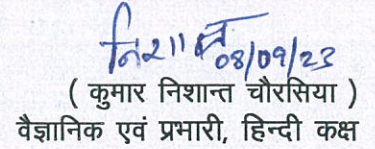 निशान्त
08/09/23
( कुमार निशान्त चौरसिया )
वैज्ञानिक एवं प्रभारी, हिन्दी कक्ष